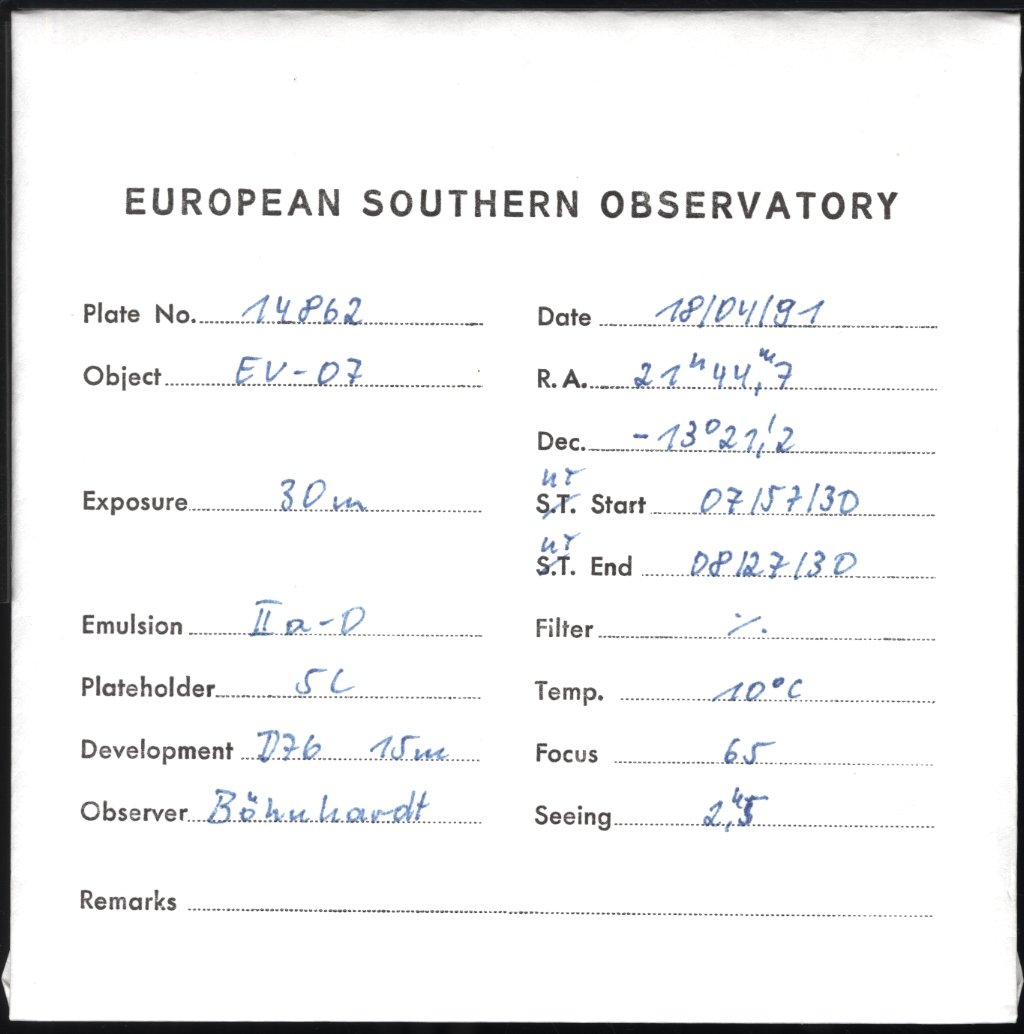 EUROPEAN SOUTHERN OBSERVATORY
Plate No. 14862 Date 18/04/91
Object EV-07 R.A. 21ʰ44,ᵐ7
Dec. -13°21,'2
UT
Exposure 30m S.T. Start 07/57/30
UT
S.T. End 08/27/30
Emulsion IIa-D Filter ./.
Plateholder 5C Temp. 10°C
Development D76 15m Focus 65
Observer Böhnhardt Seeing 2,"5
Remarks